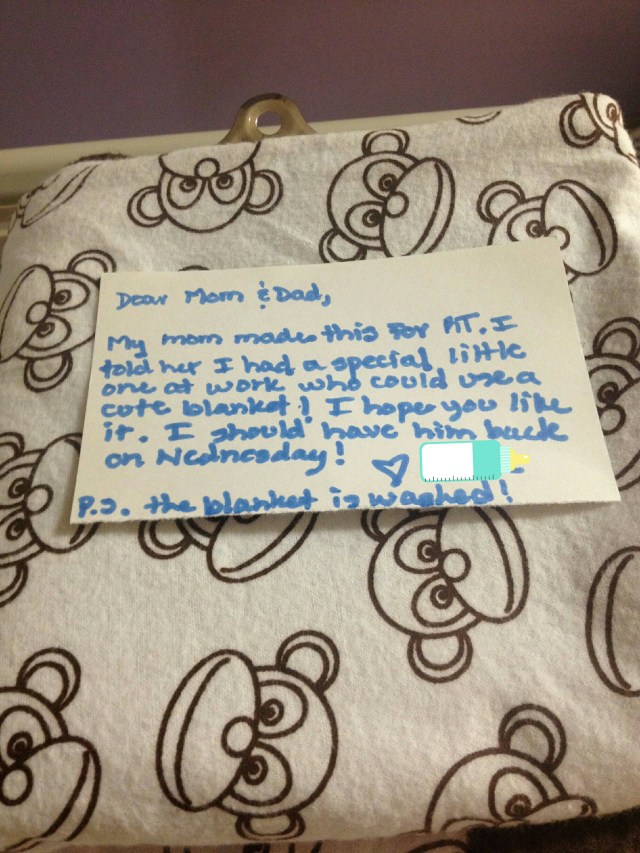 Dear Mom & Dad,
My mom made this for MT. I
told her I had a special little
one at work who could use a
cute blanket! I hope you like
it. I should have him back
on Wednesday!
P.S. the blanket is washed!